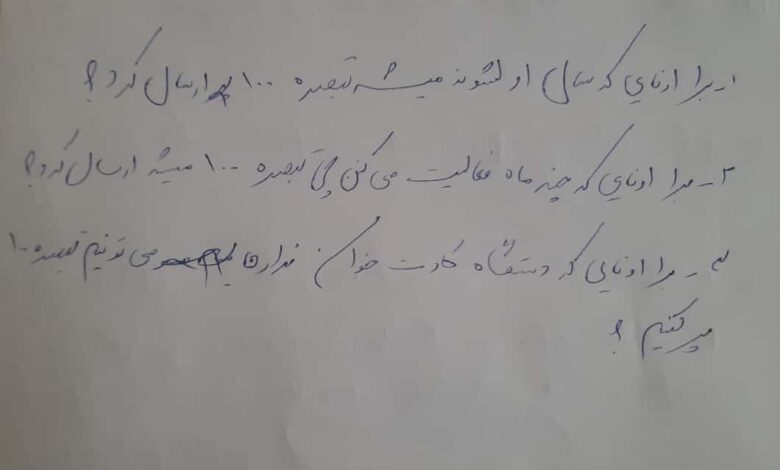 ۱- برا اونایی که سال اولشونه میشه تبصره ۱۰۰ ارسال کرد ؟
۲- برا اونایی که چند ماه فعالیت می کنن چی تبصره ۱۰۰ میشه ارسال کرد ؟
۳- برا اونایی که دستگاه کارت خوان ندارن می تونیم تبصره ۱۰۰
پر کنیم ؟